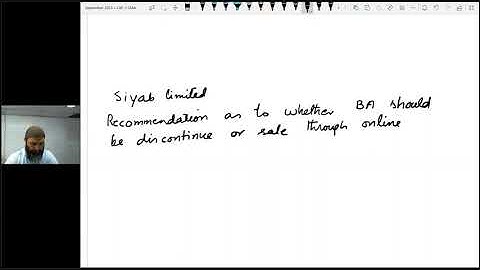 Siyab limited
Recommendation as to whether BA should
be discontinue or sale through online